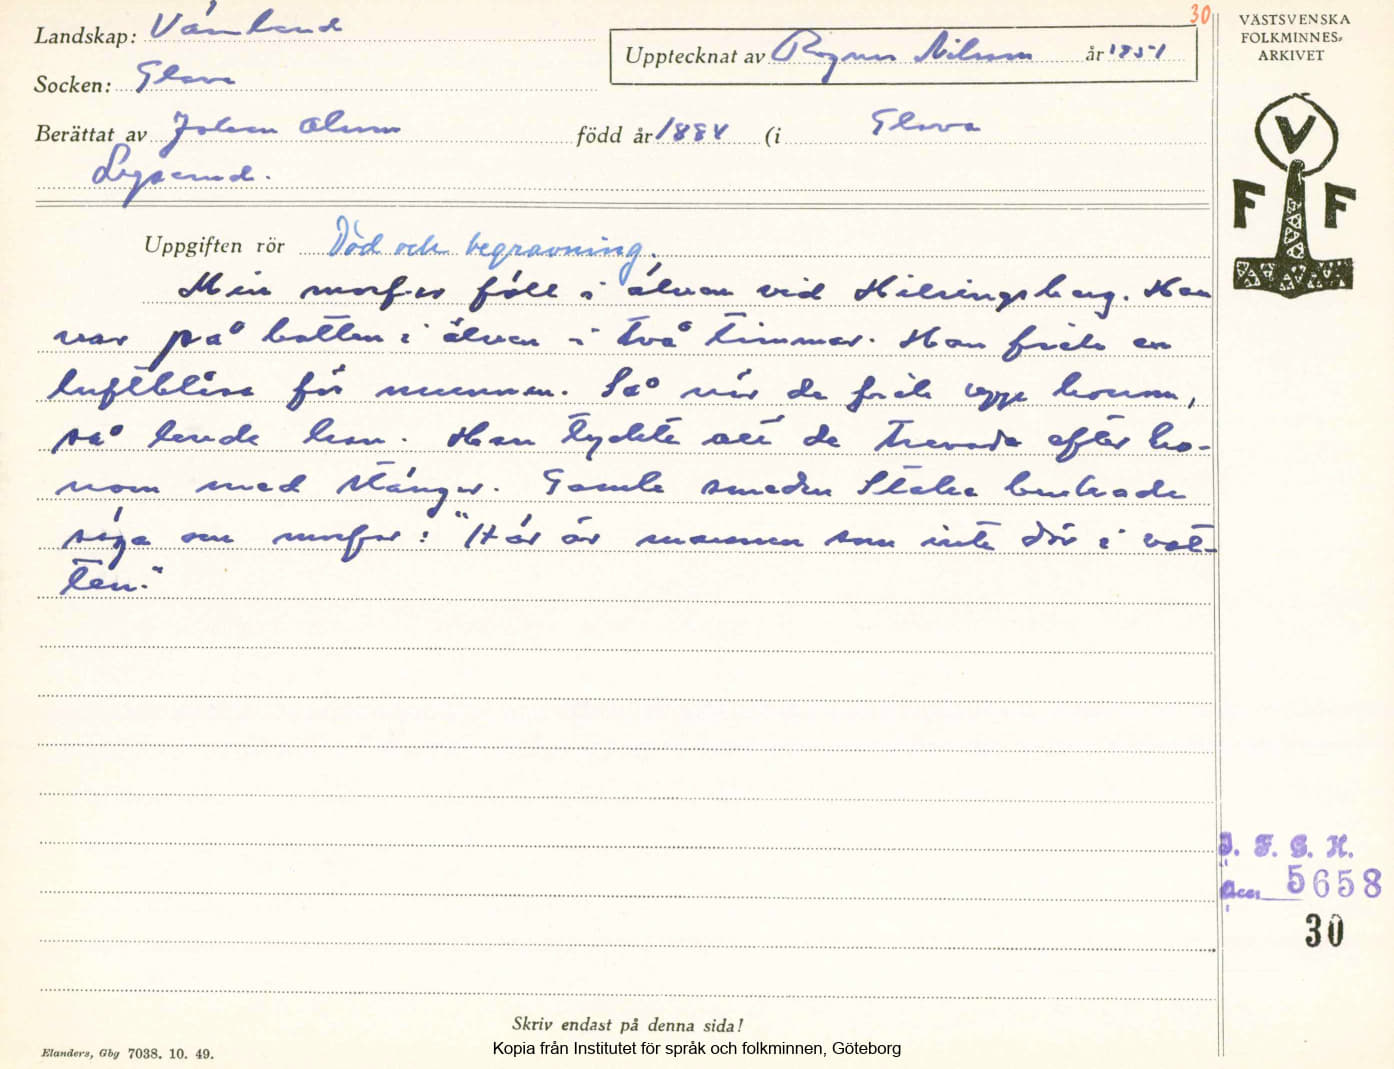 30
VÄSTSVENSKA
FOLKMINNES-
ARKIVET
Landskap: Värmland
Upptecknat av Ragnar Nilsson år 1951
Socken: Glava
Berättat av Johan Olsson född år 1884 (i Glava
V
F F
Uppgiften rör Död och begravning.
Min morfar föll i älven vid Hillringsberg. Han
var på botten i älven i två timmar. Han fick en
luftblåsa för munnen. Så när de fick upp honom,
så levde han. Han tyckte att de trevade efter ho-
nom med stänger. Gamle smeden Ståhle brukade
säga om morfar: "Här är mannen som inte dör i vat-
ten."
I. F. G. H.
Acc. 5658
30
Skriv endast på denna sida!
Elanders, Gbg 7038. 10. 49.
Kopia från Institutet för språk och folkminnen, Göteborg